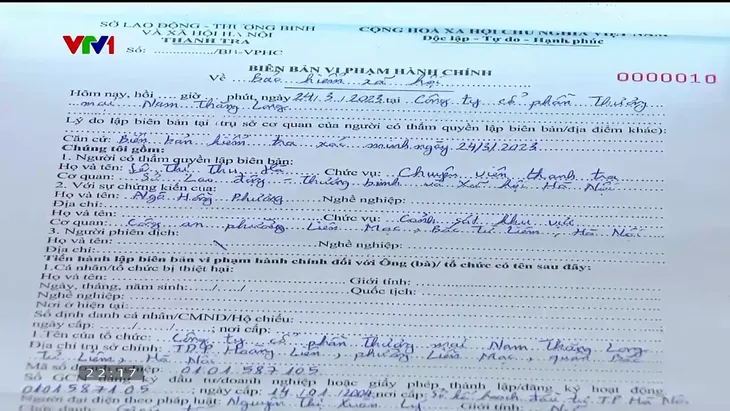 SỞ LAO ĐỘNG - THƯƠNG BINH
VÀ XÃ HỘI HÀ NỘI
THANH TRA
Số: ............/BB-VPHC
CỘNG HOÀ XÃ HỘI CHỦ NGHĨA VIỆT NAM
Độc lập - Tự do - Hạnh phúc
VTV1
BIÊN BẢN VI PHẠM HÀNH CHÍNH
Về Bảo hiểm xã hội
0000010
Hôm nay, hồi .... giờ .... phút, ngày 24/3/2023 tại Công ty cổ phần Thương
mại Nam Thăng Long
Lý do lập biên bản tại trụ sở cơ quan của người có thẩm quyền lập biên bản/địa điểm khác):
Căn cứ: Biên bản kiểm tra xác minh ngày 24/3/2023
Chúng tôi gồm:
1. Người có thẩm quyền lập biên bản:
Họ và tên: Lê Thị Thu Hà Chức vụ: Chuyên viên thanh tra
Cơ quan: Sở Lao động - Thương binh và Xã hội Hà Nội
2. Với sự chứng kiến của:
Họ và tên: Ngô Hồng Phương Nghề nghiệp:
Địa chỉ:
Họ và tên: Chức vụ: Cảnh sát khu vực
Cơ quan: Công an phường Liên Mạc, Bắc Từ Liêm, Hà Nội
3. Người phiên dịch:
Họ và tên: Nghề nghiệp:
Địa chỉ:
Tiến hành lập biên bản vi phạm hành chính đối với Ông (bà)/ tổ chức có tên sau đây:
1.Cá nhân/tổ chức bị thiệt hại:
Họ và tên: Giới tính:
Ngày, tháng, năm sinh:....../....../...... Quốc tịch:
Nghề nghiệp:
Nơi ở hiện tại:
Số định danh cá nhân/CMND/Hộ chiếu:
ngày cấp:....../....../......; nơi cấp:
1 Tên của tổ chức: Công ty cổ phần thương mại Nam Thăng Long
Địa chỉ trụ sở chính: TDP Hoàng Liên, phường Liên Mạc, quận Bắc
Từ Liêm, Hà Nội
Mã số 0101587105
Số GCN đăng ký đầu tư/doanh nghiệp hoặc giấy phép thành lập/đăng ký hoạt động
0101587105; ngày cấp: 14/01/2004 nơi cấp: Sở kế hoạch đầu tư TP Hà Nội
Người đại diện theo pháp luật: Nguyễn Thị Xuân Ly Giới tính: Nữ
22:17